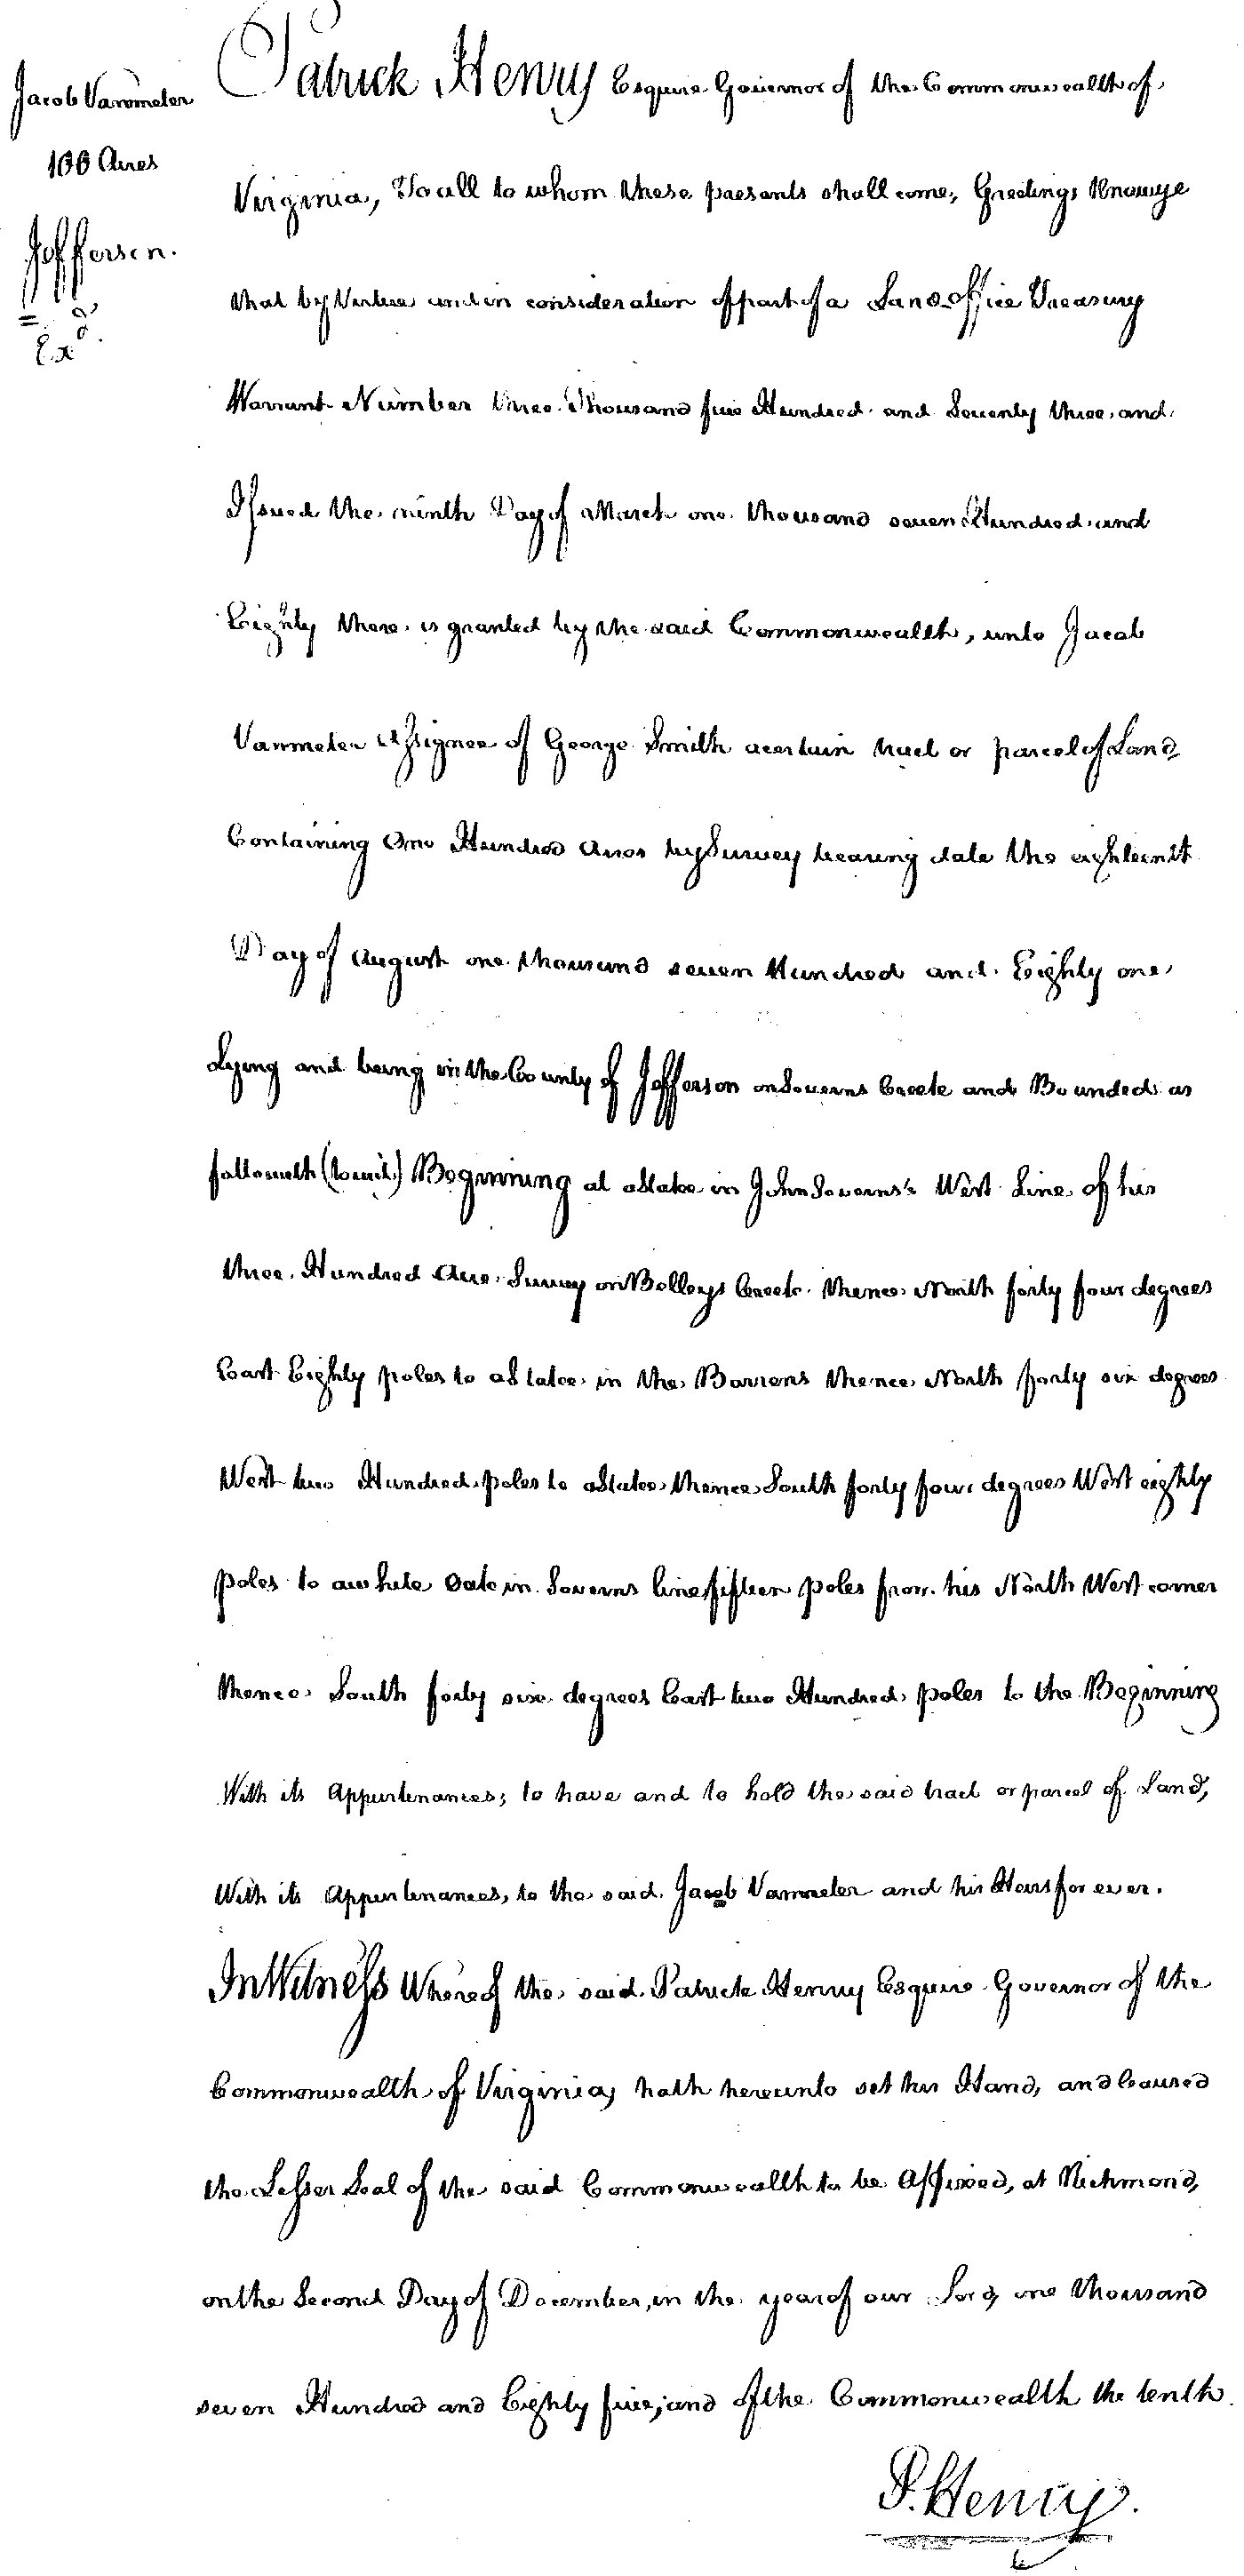 Jacob Vanmeter
100 Acres
Jefferson.
Exd.
Patrick Henry Esquire Governor of the Commonwealth of
Virginia, To all to whom these presents shall come, Greeting, Know ye
that by Virtue and in consideration of part of a Land office Treasury
Warrant Number three Thousand five Hundred and Seventy three and
Issued the ninth Day of March one thousand seven Hundred and
Eighty there is granted by the said Commonwealth, unto Jacob
Vanmeter Assignee of George Smith a certain tract or parcel of Land
Containing One Hundred Acres by Survey bearing date the eighteenth
Day of August one thousand seven Hundred and Eighty one
Lying and being in the County of Jefferson on Soverns Creek and Bounded as
followeth (towit) Beginning at a Stake in John Soverns's West Line of his
three Hundred Acre Survey on Bolleys Creek thence North forty four degrees
East Eighty poles to a Stake in the Barrens thence North forty six degrees
West two Hundred poles to a Stake thence South forty four degrees West eighty
poles to a white Oak in Soverns line fifteen poles from his North West corner
thence South forty six degrees East two Hundred poles to the Beginning
With its Appurtenances; to have and to hold the said tract or parcel of Land,
With its Appurtenances, to the said Jacob Vanmeter and his Heirs for ever.
In Witness Whereof the said Patrick Henry Esquire Governor of the
Commonwealth of Virginia, hath hereunto set his Hand, and Caused
the Lesser Seal of the said Commonwealth to be Affixed, at Richmond,
on the Second Day of December, in the year of our Lord, one thousand
seven Hundred and Eighty five; and of the Commonwealth the tenth.
P. Henry.